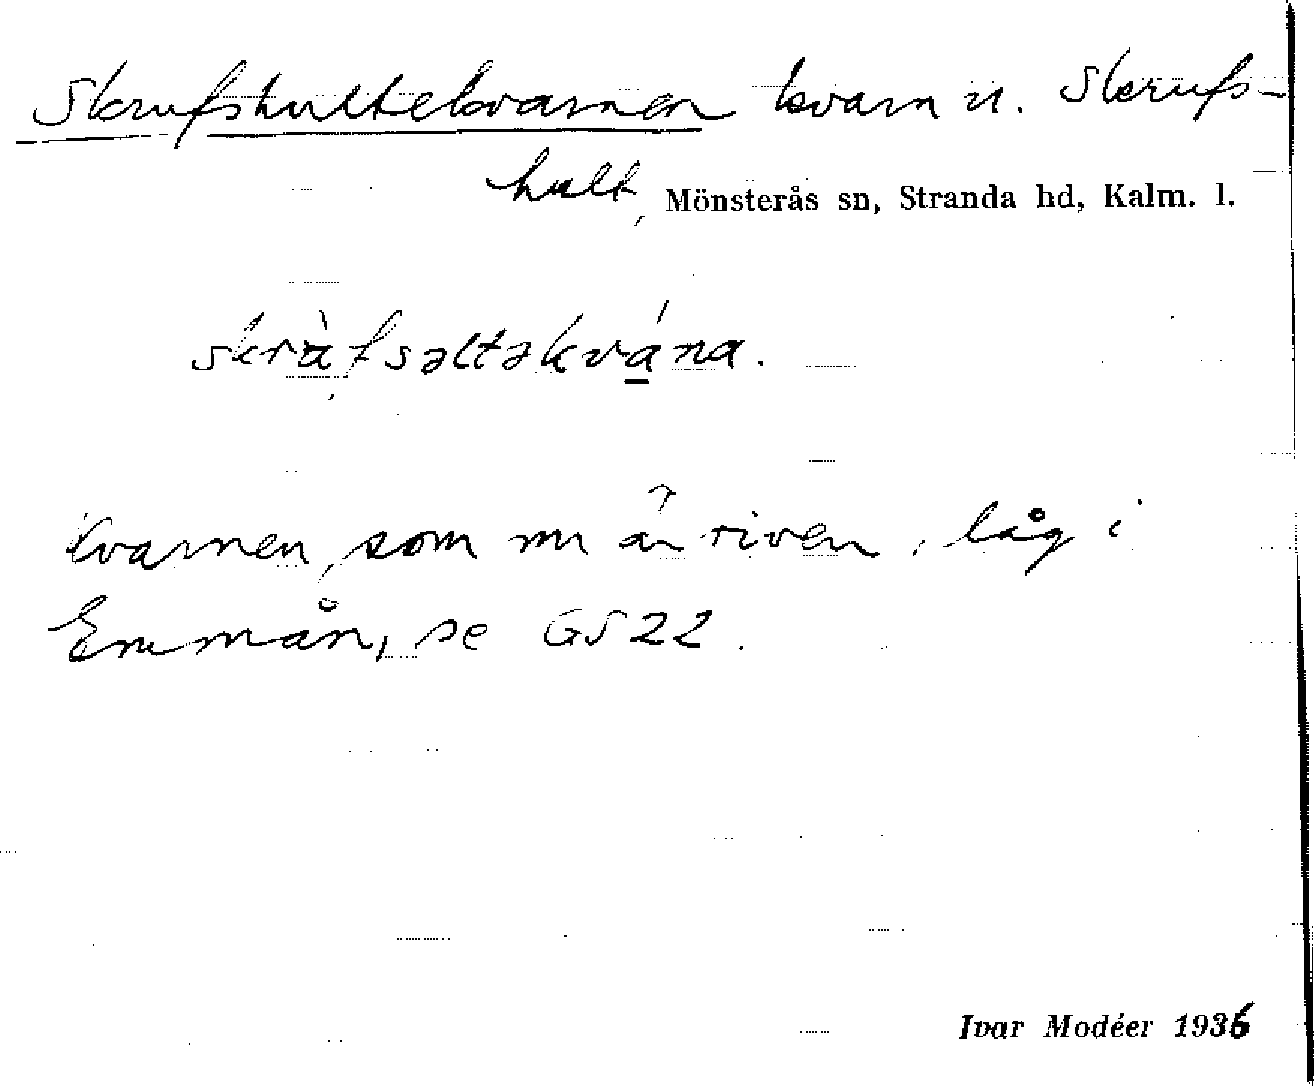 Skrufshultekvarnen kvarn u. Skrufs-
hult, Mönsterås sn, Stranda hd, Kalm. l.
skràfsəltəkvána.
Kvarnen, som nu är riven, låg i
Emmån, se GS 22.
Ivar Modéer 1936